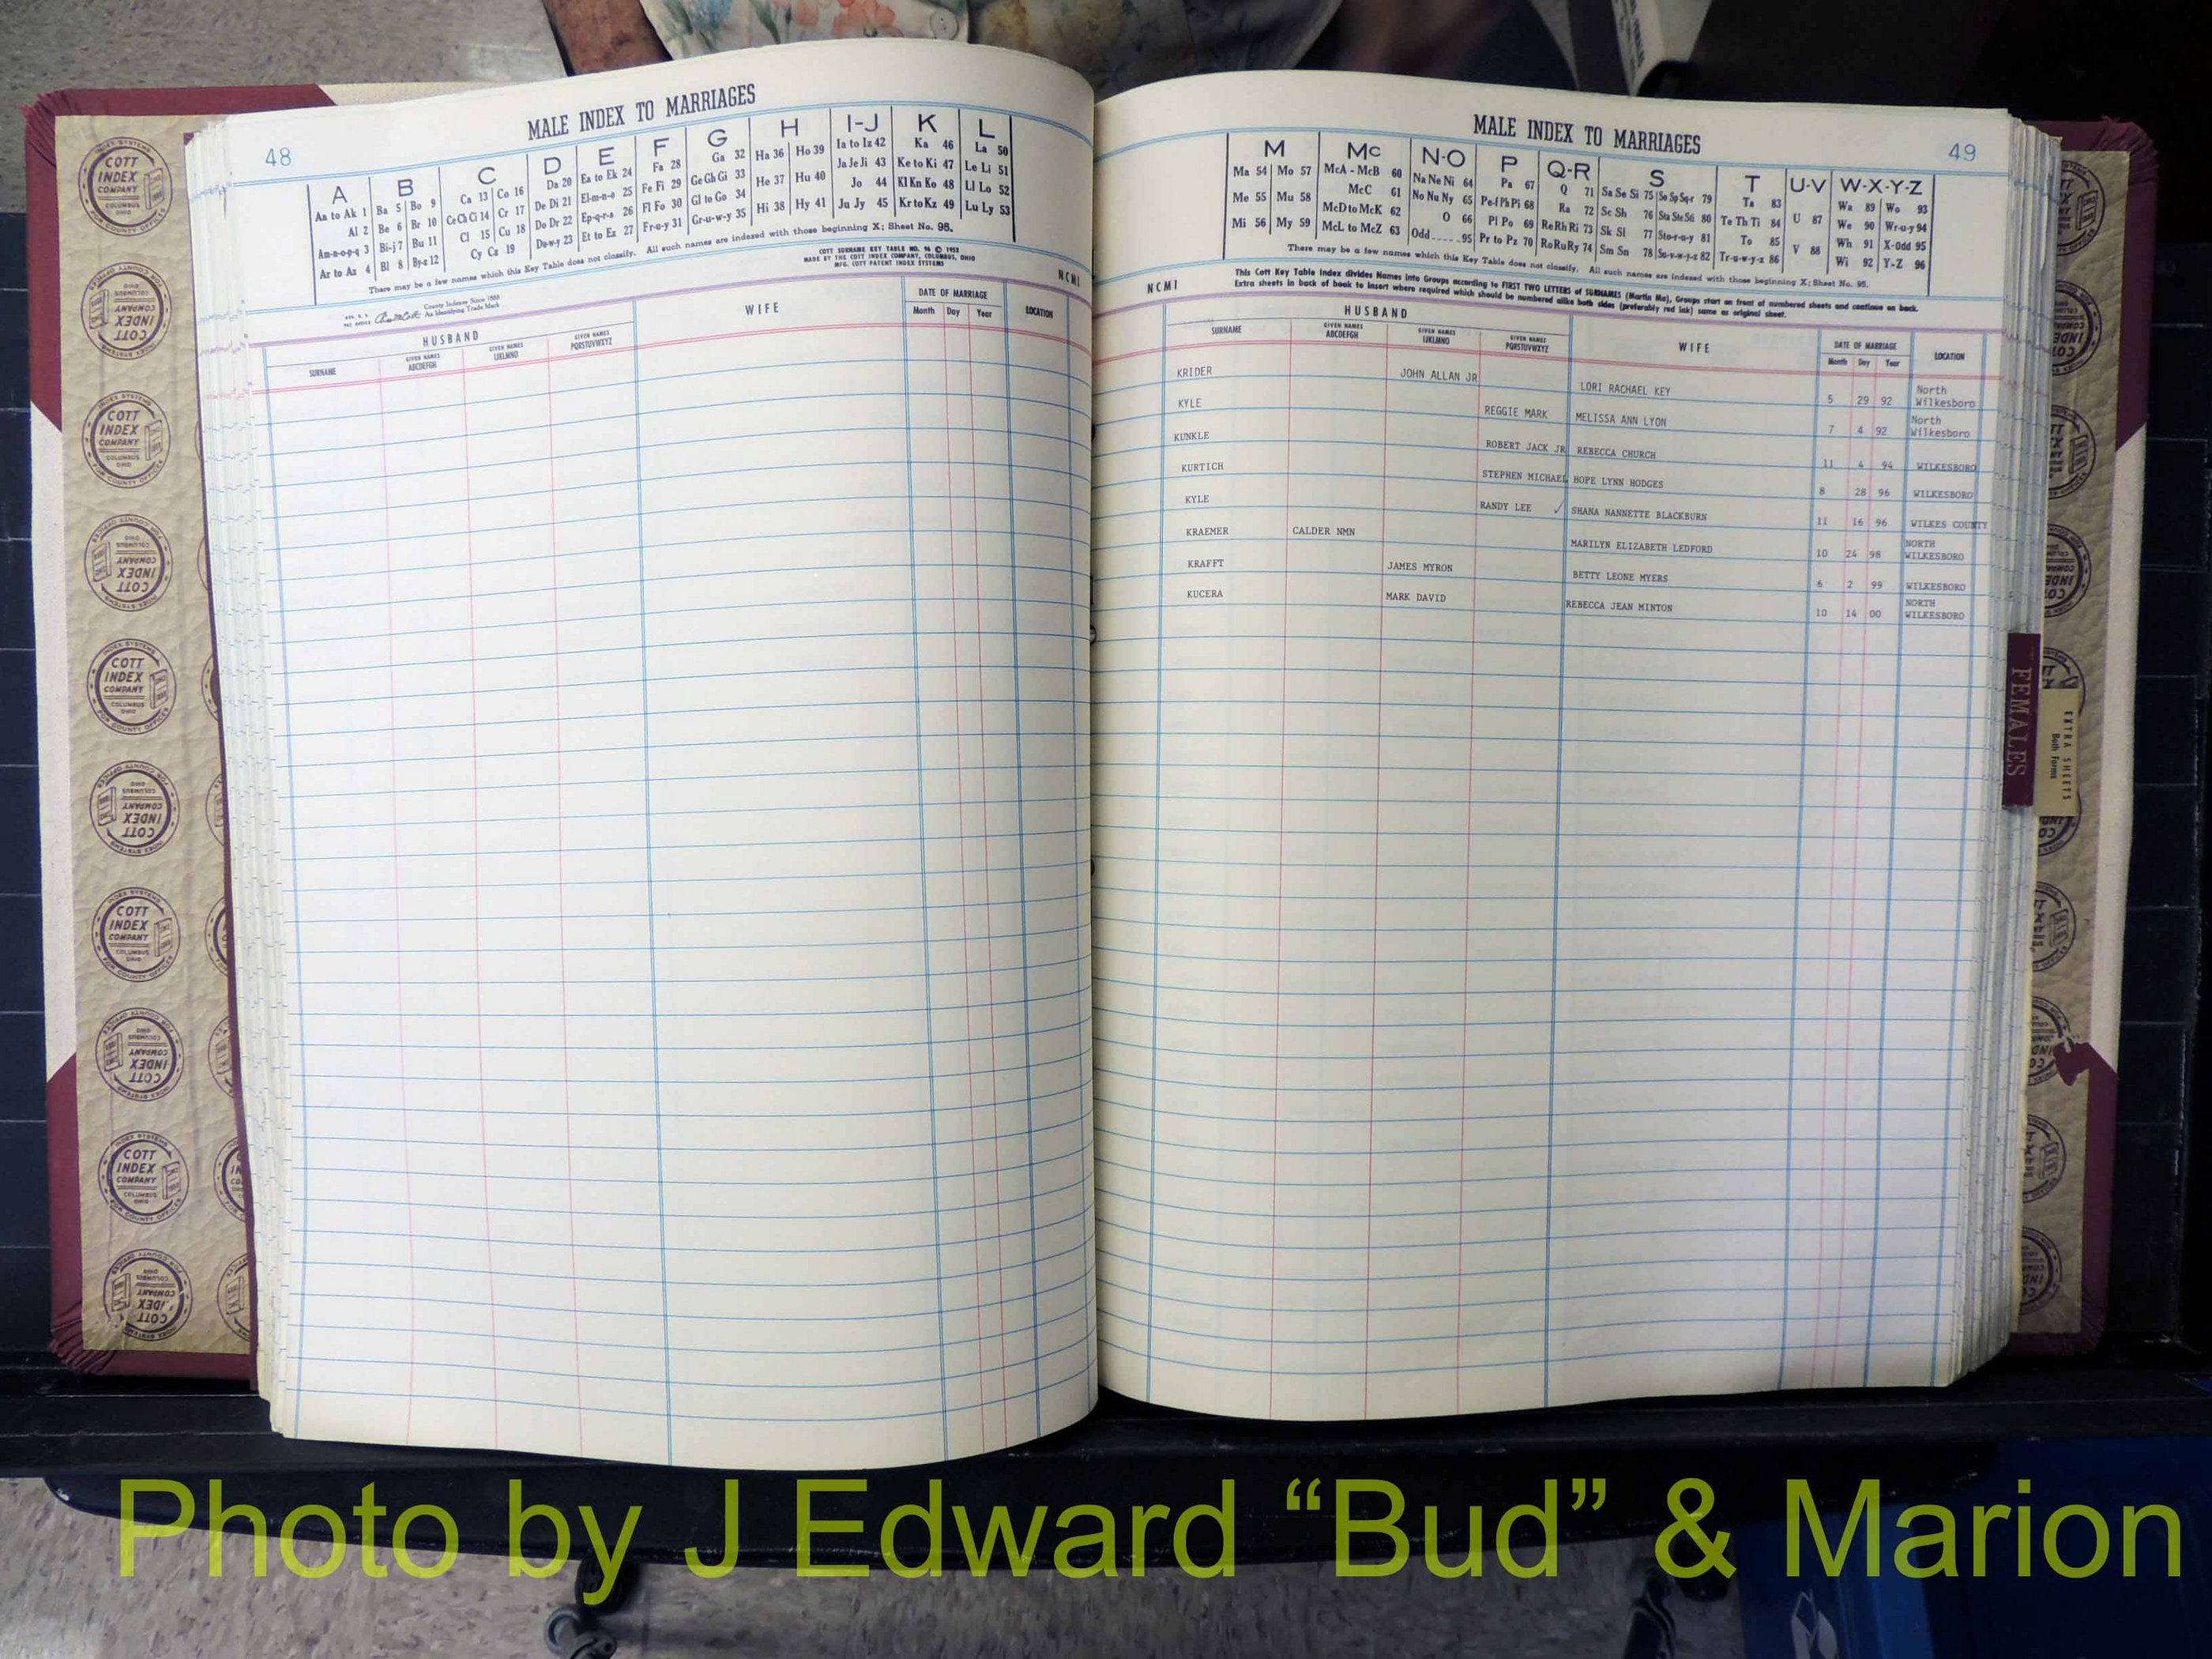 MALE INDEX TO MARRIAGES
48
A B C D E F G H I-J K L
Aa to Ak 1 Ba 5 Bo 9 Ca 13 Co 16 Da 20 Ea to Ek 24 Fa 28 Ga 32 Ha 36 Ho 39 Ia to Iz 42 Ka 46 La 50
Al 2 Be 6 Br 10 Ce Ch Ci 14 Cr 17 De Di 21 El-m-n-o 25 Fe Fi 29 Ge Gh Gi 33 He 37 Hu 40 Ja Je Ji 43 Ke to Ki 47 Le Li 51
Am-n-o-p-q 3 Bi-j 7 Bu 11 Cl 15 Cu 18 Do Dr 22 Ep-q-r-s 26 Fl Fo 30 Gl to Go 34 Hi 38 Hy 41 Jo 44 Kl Kn Ko 48 Ll Lo 52
Ar to Az 4 Bl 8 By-z 12 Cy Cz 19 Du-w-y 23 Et to Ez 27 Fr-u-y 31 Gr-u-w-y 35 Ju Jy 45 Kr to Kz 49 Lu Ly 53
There may be a few names which this Key Table does not classify. All such names are indexed with those beginning X; Sheet No. 95.
COTT SURNAME KEY TABLE NO. 96 © 1952
MADE BY THE COTT INDEX COMPANY, COLUMBUS, OHIO
MFG. COTT PATENT INDEX SYSTEMS
County Indexes Since 1888
An Identifying Trade Mark
NCMI
HUSBAND WIFE DATE OF MARRIAGE LOCATION
SURNAME GIVEN NAMES ABCDEFGH GIVEN NAMES IJKLMNO GIVEN NAMES PQRSTUVWXYZ Month Day Year
MALE INDEX TO MARRIAGES
49
M Mc N-O P Q-R S T U-V W-X-Y-Z
Ma 54 Mo 57 McA - McB 60 Na Ne Ni 64 Pa 67 Q 71 Sa Se Si 75 So Sp Sq-r 79 Ta 83 Wa 89 Wo 93
Me 55 Mu 58 McC 61 No Nu Ny 65 Pe-f Ph Pi 68 Ra 72 Sc Sh 76 Sta Ste S6 80 Te Th Ti 84 U 87 We 90 Wr-u-y 94
Mi 56 My 59 McD to McK 62 O 66 Pl Po 69 Re Rh Ri 73 Sk Sl 77 Sto-r-u-y 81 To 85 V 88 Wh 91 X-Odd 95
McL to McZ 63 Odd 95 Pr to Pz 70 Ro Ru Ry 74 Sm Sn 78 Su-v-w-y-z 82 Tr-u-w-y-z 86 Wi 92 Y-Z 96
There may be a few names which this Key Table does not classify. All such names are indexed with those beginning X; Sheet No. 95.
This Cott Key Table Index divides Names into Groups according to FIRST TWO LETTERS of SURNAMES (Martin Ma), Groups start on front of numbered sheets and continue on back.
Extra sheets in back of book to insert where required which should be numbered alike both sides (preferably red ink) same as original sheet.
NCMI
HUSBAND WIFE DATE OF MARRIAGE LOCATION
SURNAME GIVEN NAMES ABCDEFGH GIVEN NAMES IJKLMNO GIVEN NAMES PQRSTUVWXYZ Month Day Year
KRIDER JOHN ALLAN JR LORI RACHAEL KEY 5 29 92 North Wilkesboro
KYLE REGGIE MARK MELISSA ANN LYON 7 4 92 North Wilkesboro
KUNKLE ROBERT JACK JR REBECCA CHURCH 11 4 94 WILKESBORO
KURTICH STEPHEN MICHAEL HOPE LYNN HODGES 8 28 96 WILKESBORO
KYLE RANDY LEE ✓ SHANA NANNETTE BLACKBURN 11 16 96 WILKES COUNTY
KRAEMER CALDER NMN MARILYN ELIZABETH LEDFORD 10 24 98 NORTH WILKESBORO
KRAFFT JAMES MYRON BETTY LEONE MYERS 6 2 99 WILKESBORO
KUCERA MARK DAVID REBECCA JEAN MINTON 10 14 00 NORTH WILKESBORO
FEMALES
EXTRA SHEETS
Both Forms
COTT INDEX COMPANY
COLUMBUS OHIO
INDEX SYSTEMS
FOR COUNTY OFFICES
Photo by J Edward “Bud” & Marion